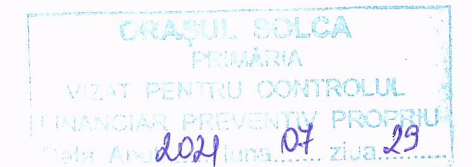 ORAȘUL SOLCA
PRIMĂRIA
VIZAT PENTRU CONTROLUL
FINANCIAR PREVENTIV PROPRIU
Data Anul 2021 luna 07 ziua 29